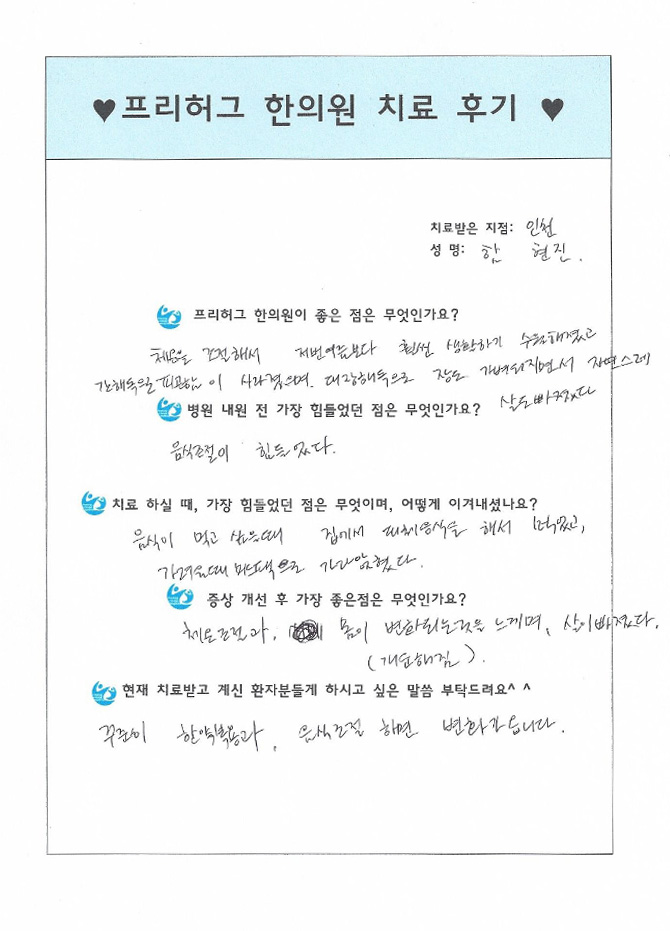 ♥프리허그 한의원 치료 후기 ♥
치료받은 지점: 인천
성 명: 함 현진.
프리허그 한의원이 좋은 점은 무엇인가요?
체온을 조절해서 저번여름보다 훨씬 생활하기 수월해졌고
간해독으로 피곤함이 사라졌으며. 대장해독으로 장도 가벼워지면서 자연스레
살도빠졌다
병원 내원 전 가장 힘들었던 점은 무엇인가요?
음식조절이 힘들었다.
치료 하실 때, 가장 힘들었던 점은 무엇이며, 어떻게 이겨내셨나요?
음식이 먹고 싶을때 집에서 대체음식을 해서 먹었고,
가려울때 마스크팩으로 가라앉혔다.
증상 개선 후 가장 좋은점은 무엇인가요?
체온조절과, 몸이 변화되는것을 느끼며, 살이빠졌다.
(개운해짐).
현재 치료받고 계신 환자분들게 하시고 싶은 말씀 부탁드려요^ ^
꾸준히 한약복용과, 음식조절 하면 변화가옵니다.